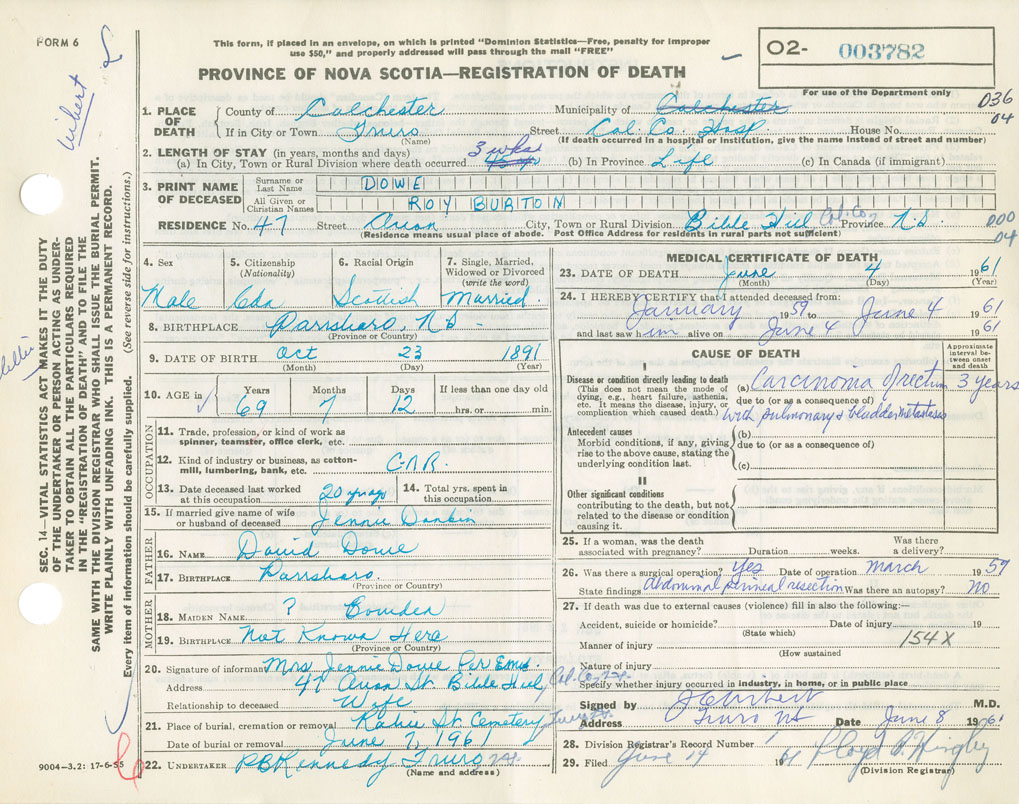 FORM 6
This form, if placed in an envelope, on which is printed "Dominion Statistics—Free, penalty for improper
use $50," and properly addressed will pass through the mail "FREE"
PROVINCE OF NOVA SCOTIA—REGISTRATION OF DEATH
O2- 003782
For use of the Department only
036
04
1. PLACE OF DEATH
County of Colchester Municipality of Colchester
If in City or Town Truro Street Col. Co. Hosp House No.
(Name) (If death occurred in a hospital or institution, give the name instead of street and number)
2. LENGTH OF STAY (in years, months and days)
(a) In City, Town or Rural Division where death occurred 3 wks (b) In Province Life (c) In Canada (if immigrant)
3. PRINT NAME OF DECEASED
Surname or Last Name DOWE
All Given or Christian Names ROY BURTON
RESIDENCE No. 47 Street Avon City, Town or Rural Division Bible Hill Col. Co. Province N.S.
(Residence means usual place of abode. Post Office Address for residents in rural parts not sufficient)
000
04
4. Sex
Male
5. Citizenship
(Nationality)
Cdn
6. Racial Origin
Scottish
7. Single, Married, Widowed or Divorced
(write the word)
Married.
8. BIRTHPLACE Parrsboro, N.S.
(Province or Country)
9. DATE OF BIRTH Oct 23 1891
(Month) (Day) (Year)
10. AGE in
Years Months Days If less than one day old
69 7 12 hrs. or min.
OCCUPATION
11. Trade, profession, or kind of work as
spinner, teamster, office clerk, etc.
12. Kind of industry or business, as cotton-
mill, lumbering, bank, etc. C.N.R.
13. Date deceased last worked
at this occupation 20 yrs ago
14. Total yrs. spent in
this occupation
15. If married give name of wife
or husband of deceased Jennie
FATHER
16. NAME David Dowe
17. BIRTHPLACE Parrsboro.
(Province or Country)
MOTHER
18. MAIDEN NAME ?
19. BIRTHPLACE Not Known Here
(Province or Country)
20. Signature of informant Mrs Jennie Dowe Per
Address 47 Avon St. Bible Hill, Col. Co. N.S.
Relationship to deceased Wife
21. Place of burial, cremation or removal St. Cemetery, Truro
Date of burial or removal June 7, 1961
22. UNDERTAKER P B Kennedy Truro N.S.
(Name and address)
9004—3.2: 17-6-55
MEDICAL CERTIFICATE OF DEATH
23. DATE OF DEATH June 4 1961
(Month) (Day) (Year)
24. I HEREBY CERTIFY that I attended deceased from:
January 1959 to June 4 1961
and last saw him alive on June 4 1961
CAUSE OF DEATH
Approximate interval between onset and death
I
Disease or condition directly leading to death
(This does not mean the mode of
dying, e.g., heart failure, asthenia,
etc. It means the disease, injury, or
complication which caused death.)
(a) Carcinoma of rectum 3 years
due to (or as a consequence of)
with pulmonary & bladder metastases
Antecedent causes
Morbid conditions, if any, giving
rise to the above cause, stating the
underlying condition last.
(b)
due to (or as a consequence of)
(c)
II
Other significant conditions
contributing to the death, but not
related to the disease or condition
causing it.
25. If a woman, was the death
associated with pregnancy? Duration weeks. Was there
a delivery?
26. Was there a surgical operation? Yes Date of operation March 1959
State findings abdominal perineal resection Was there an autopsy? No
27. If death was due to external causes (violence) fill in also the following:—
Accident, suicide or homicide? Date of injury 19
(State which)
154X
Manner of injury
(How sustained
Nature of injury
Specify whether injury occurred in industry, in home, or in public place
Signed by M.D.
Address Truro NS Date June 8 1961
28. Division Registrar's Record Number
29. Filed June 14 1961
(Division Registrar)
SEC. 14—VITAL STATISTICS ACT MAKES IT THE DUTY
OF THE UNDERTAKER OR PERSON ACTING AS UNDER-
TAKER TO OBTAIN ALL THE PARTICULARS REQUIRED
IN THE "REGISTRATION OF DEATH" AND TO FILE THE
SAME WITH THE DIVISION REGISTRAR WHO SHALL ISSUE THE BURIAL PERMIT.
WRITE PLAINLY WITH UNFADING INK. THIS IS A PERMANENT RECORD.
Every item of information should be carefully supplied. (See reverse side for instructions.)